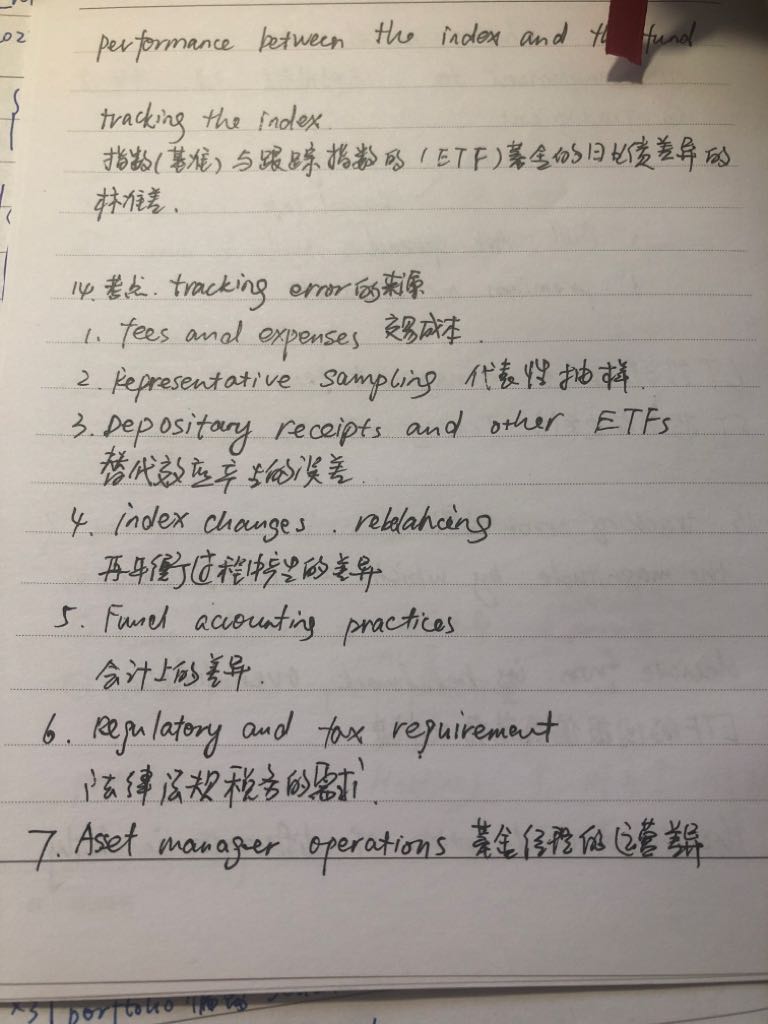 performance between the index and the fund
tracking the index.
指数(基准)与跟踪指数的(ETF)基金的日业绩差异的
标准差.
14. 考点. tracking error的来源
1. fees and expenses 交易成本.
2. Representative sampling 代表性抽样.
3. Depository receipts and other ETFs
替代效应产生的误差.
4. index changes. rebalancing
再平衡过程中产生的差异
5. Fund accounting practices
会计上的差异.
6. Regulatory and tax requirement
法律法规税务的需求.
7. Asset manager operations 基金经理的运营差异
portfolio